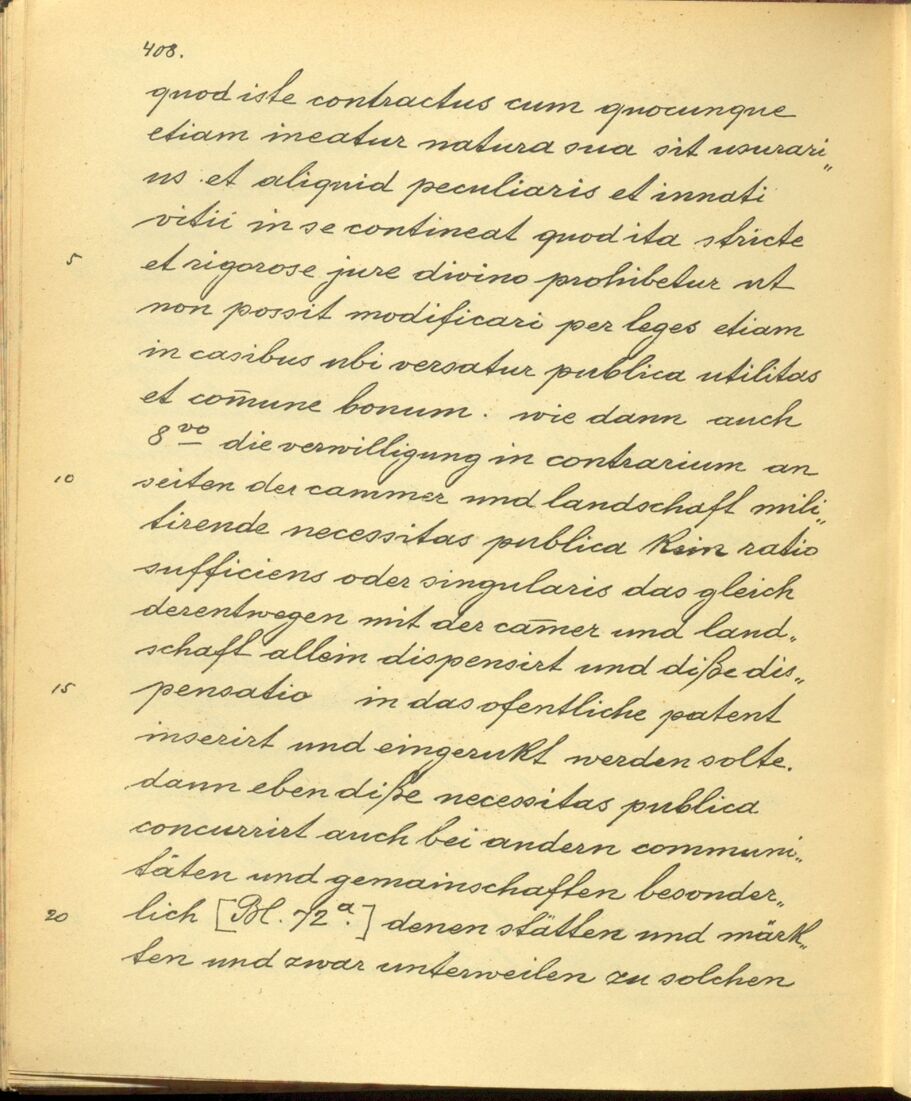 408.
quod iste contractus cum quocunque
etiam ineatur natura sua sit usurari„
us et aliquid peculiaris et innati
vitii in se contineat quod ita stricte
5 et rigorose jure divino prohibetur ut
non possit modificari per leges etiam
in casibus ubi versatur publica utilitas
et com̄une bonum. wie dann auch
8vo die verwilligung in contrarium an
10 seiten der cammer und landschaft mili„
tirende necessitas publica kein ratio
sufficiens oder singularis das gleich
derentwegen mit der cam̄er und land„
schaft allein dispensirt und diße dis„
15 pensatio in das ofentliche patent
inserirt und eingerukt werden solte.
dann eben diße necessitas publica
concurrirt auch bei andern communi„
täten und gemainschaften besonder„
20 lich [Bl. 72a.] denen stätten und märk„
ten und zwar unterweilen zu solchen